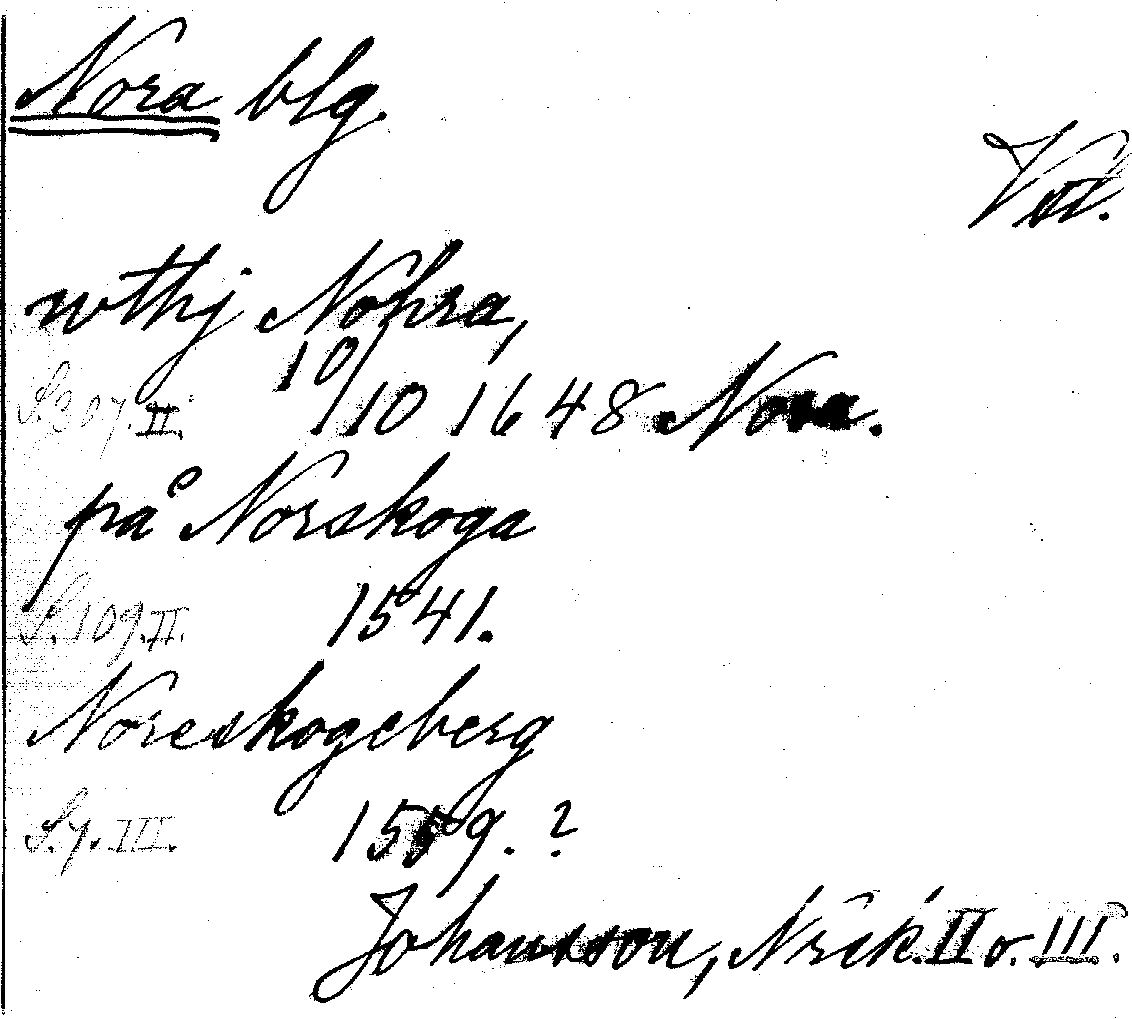 Nora blg.
Vstl.
wthj Nohra,
S. 307. II. 10/10 1648 Nora.
på Norskoga
S. 109. II. 1541.
Noreskogeberg
S. 7. III. 1559. ?
Johansson, Nrik. II o. III.